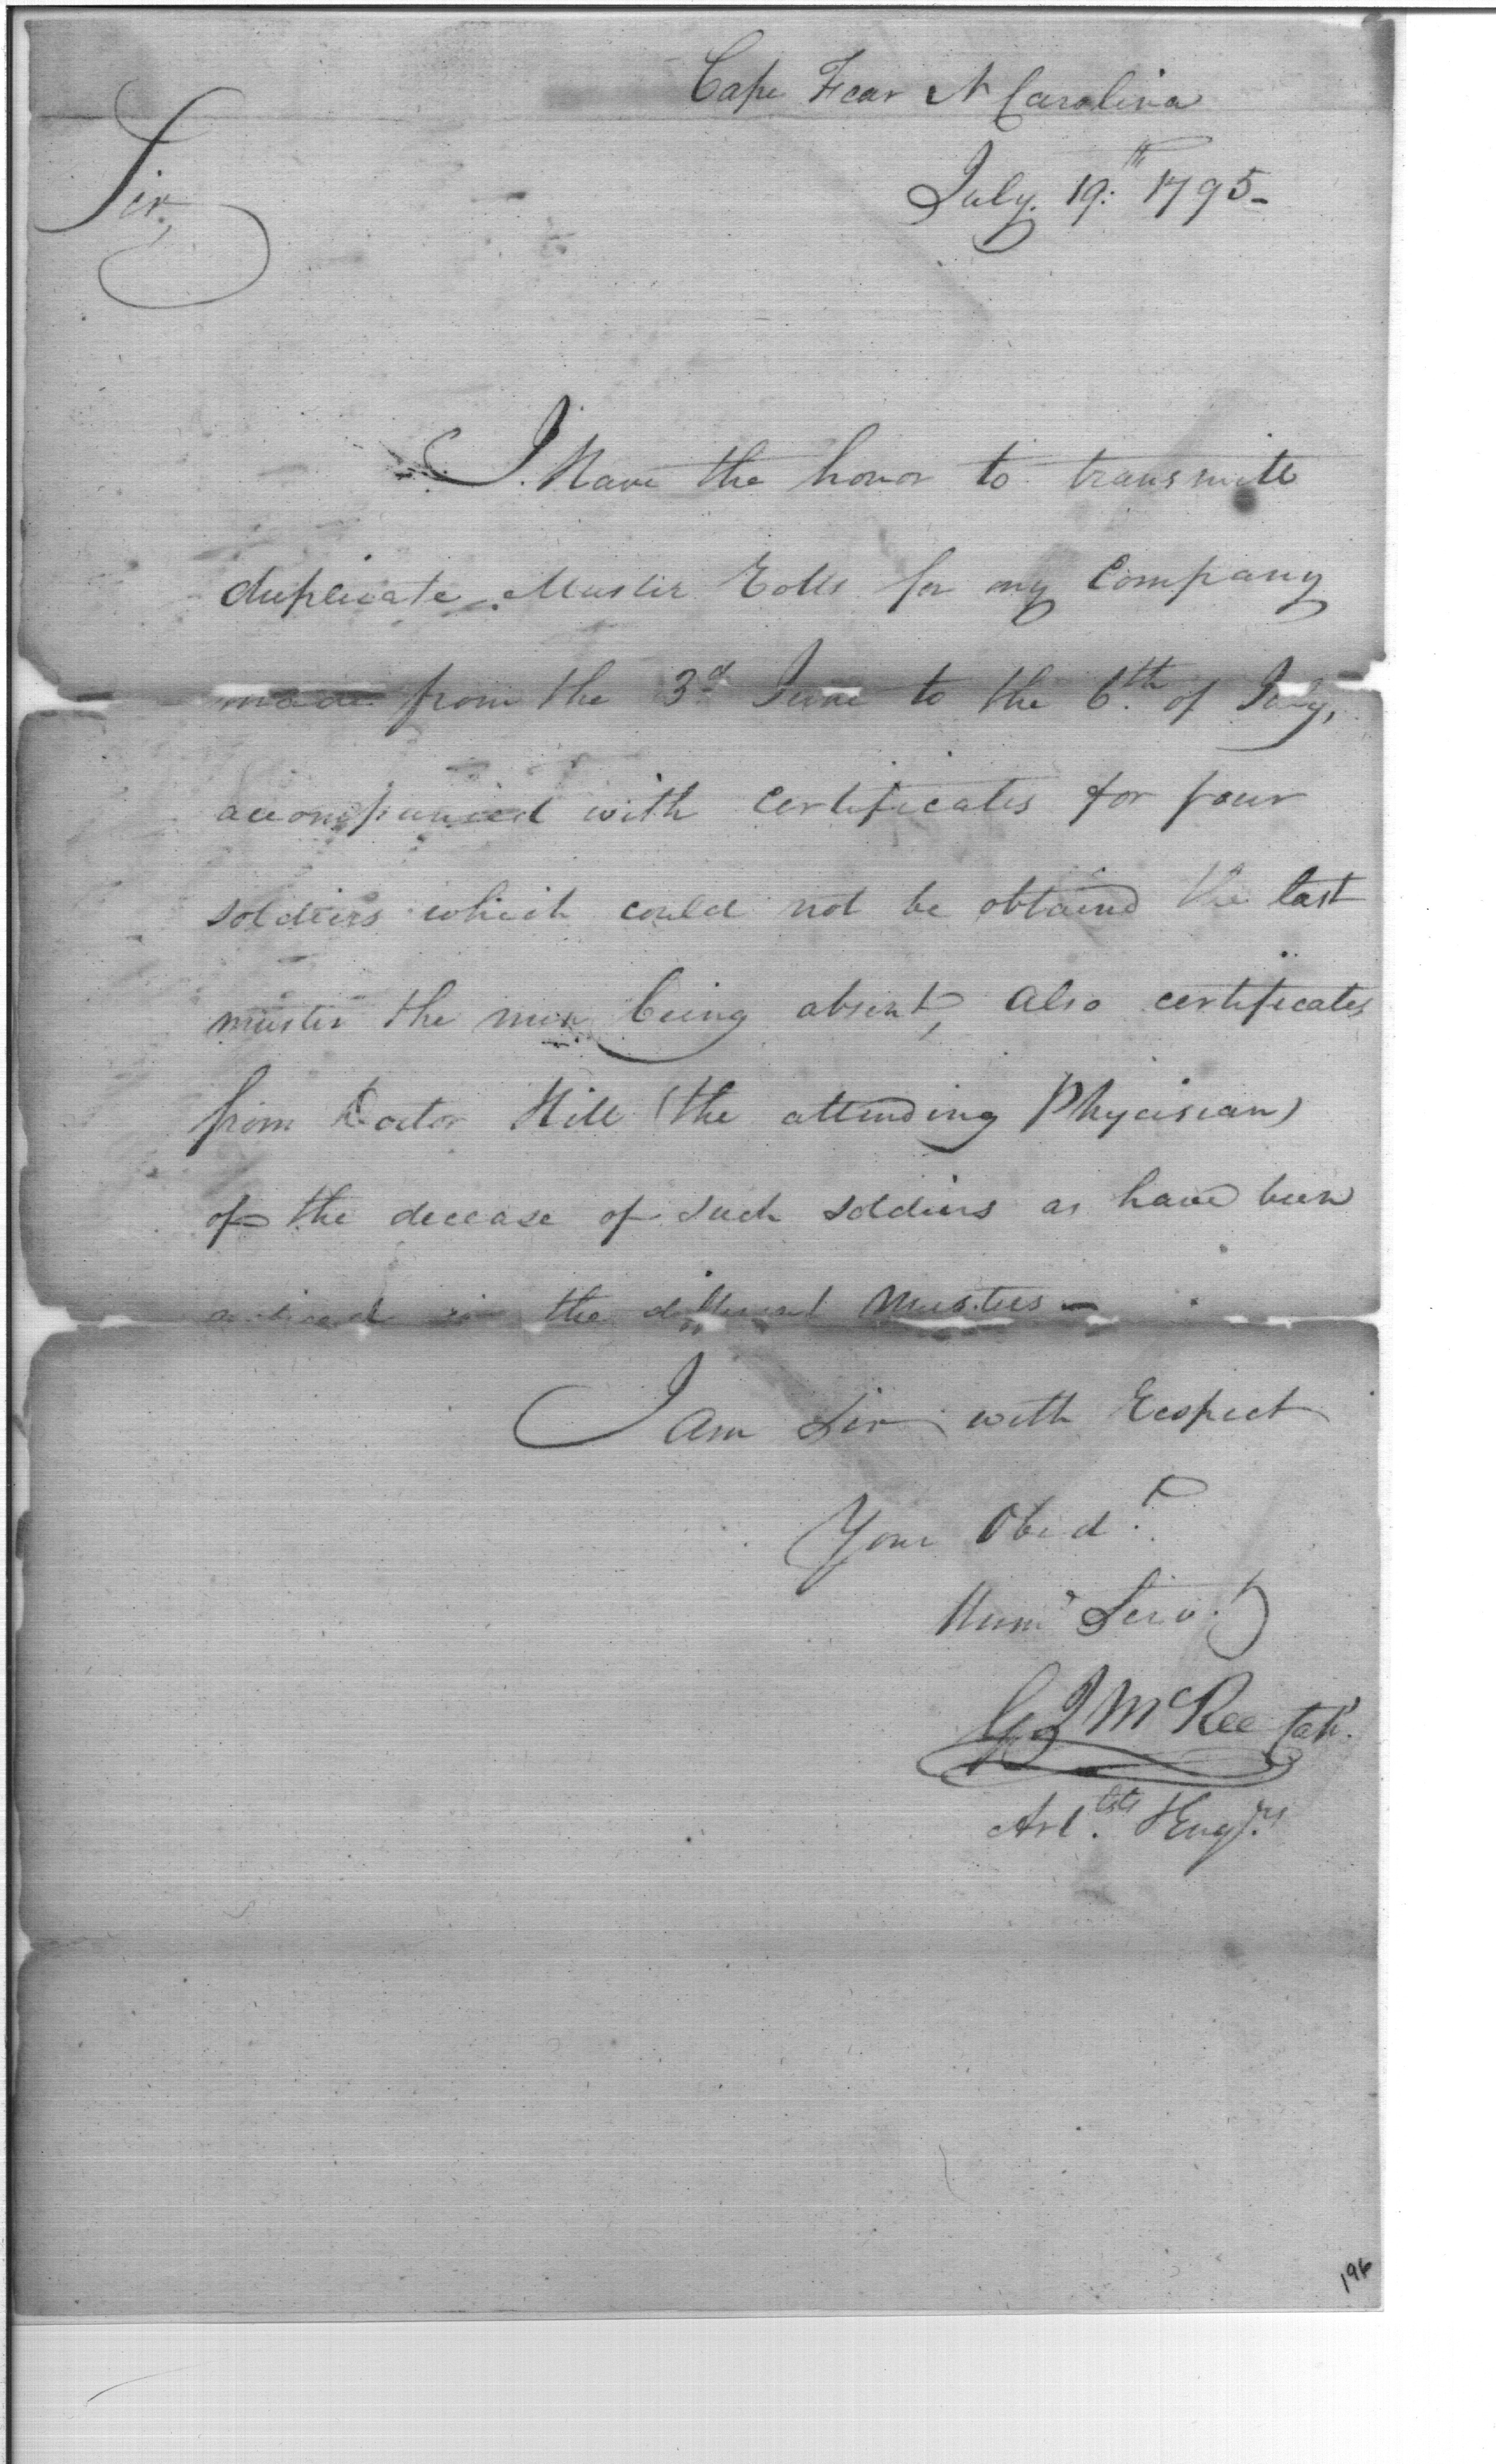 Cape Fear N Carolina
July. 19th. 1795-
Sir,
I Have the honor to transmitt
duplicate Muster Rolls for my Company
made from the 3d June to the 6th. of July,
accompanied with Certificates for four
soldiers which could not be obtained the last
muster the men being absent, also certificates
from Doctor Hill (the attending Phycisian)
of the decease of such soldiers as have been
noticed in the different Musters -
I am Sir with Respect
Your Obed.t
Hume Serv.t
G J McRee Capt.
Art.sts & Eng.rs
196